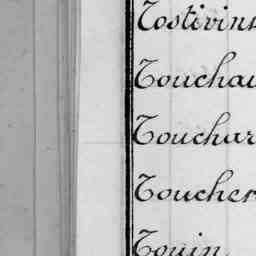 Tostivint
Touchau
Touchar
Toucher
Touin